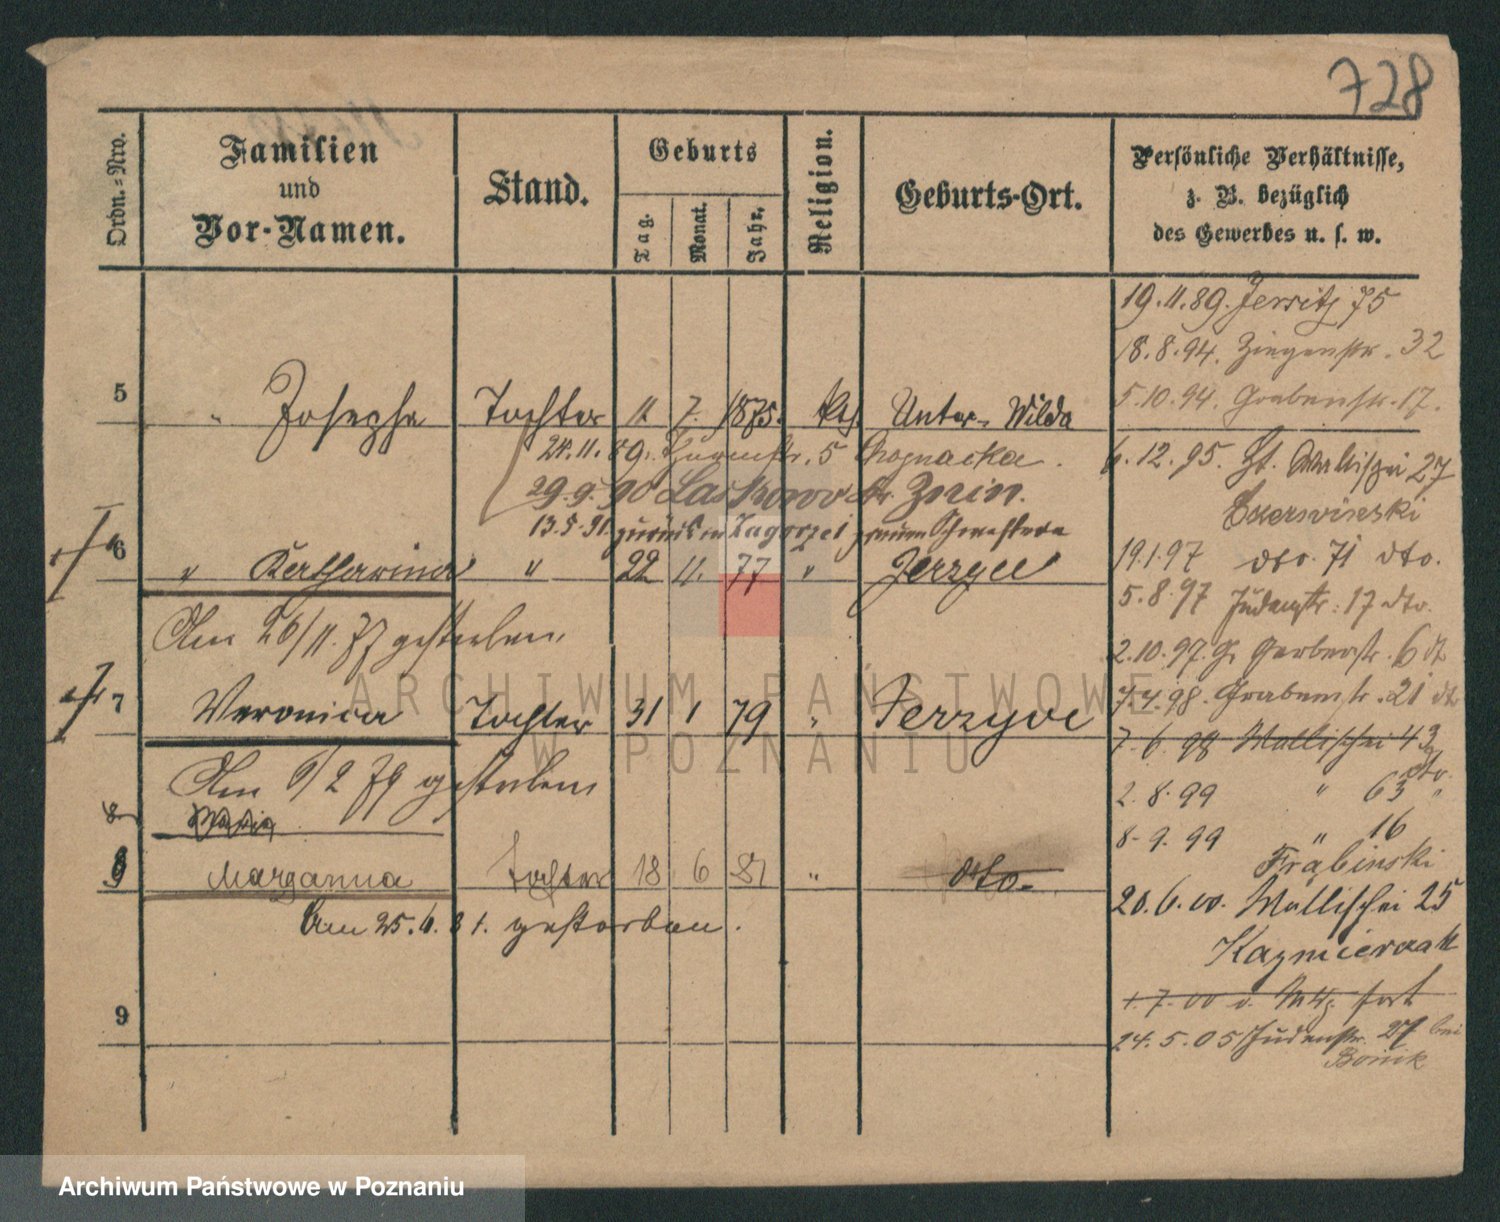 728
Ordn.-Nro.
Familien
und
Vor-Namen.
Stand.
Geburts
Tag.
Monat.
Jahr.
Religion.
Geburts-Ort.
Persönliche Verhältnisse,
z. B. bezüglich
des Gewerbes u. s. w.
19.11.89. Jersitz 75
18.8.94. Ziegenstr. 32
5.10.94. Grabenstr. 17.
5 " Josepha Tochter 11 7. 1875. kath. Unter-Wilda
24.11.89. Thurmstr. 5 Chojnacka.
6.12.95. St. Wallischei 27
29.9.90 Laskowo Kr. Znin.
13.5.91. zurück Zagorze 1 grauen Schwestern
19.1.97 dto. 71 dto.
6 " Katharina " 22 11. 77 " Jerzyce
5.8.97 Judenstr. 17 dto.
Am 26/11. 77 gestorben.
2.10.97. Gr. Gerberstr. 6 dt
7 Veronica Tochter 31 1 79 " Jerzyce
7.4.98. Grabenstr. 21 dto
7.6.98 Wallischei 43
dto.
Am 6/2 79 gestorben
2.8.99 " 63 "
8 Maria
8.9.99 " 16
9 Maryanna Tochter 18 6 81 " dto.
20.6.00. Wallischei 25
Am 25.6.81. gestorben.
Kazmierczak
1.7.00 fort
9
24.5.05 Judenstr. 27 bei
ARCHIWUM PAŃSTWOWE
W POZNANIU
Archiwum Państwowe w Poznaniu